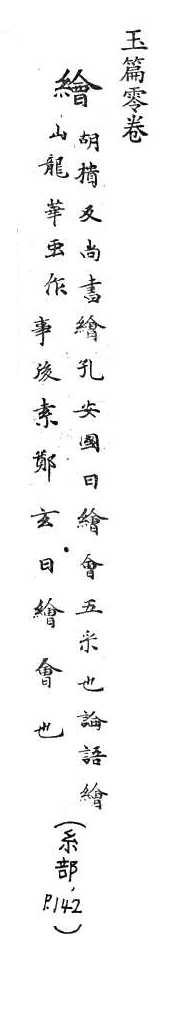 玉篇零卷
繪
胡憒反尚書
山龍華虫作
繪孔安國曰繪會五采也論語繪
事後素鄭玄曰繪會也
(糸部, P.142)